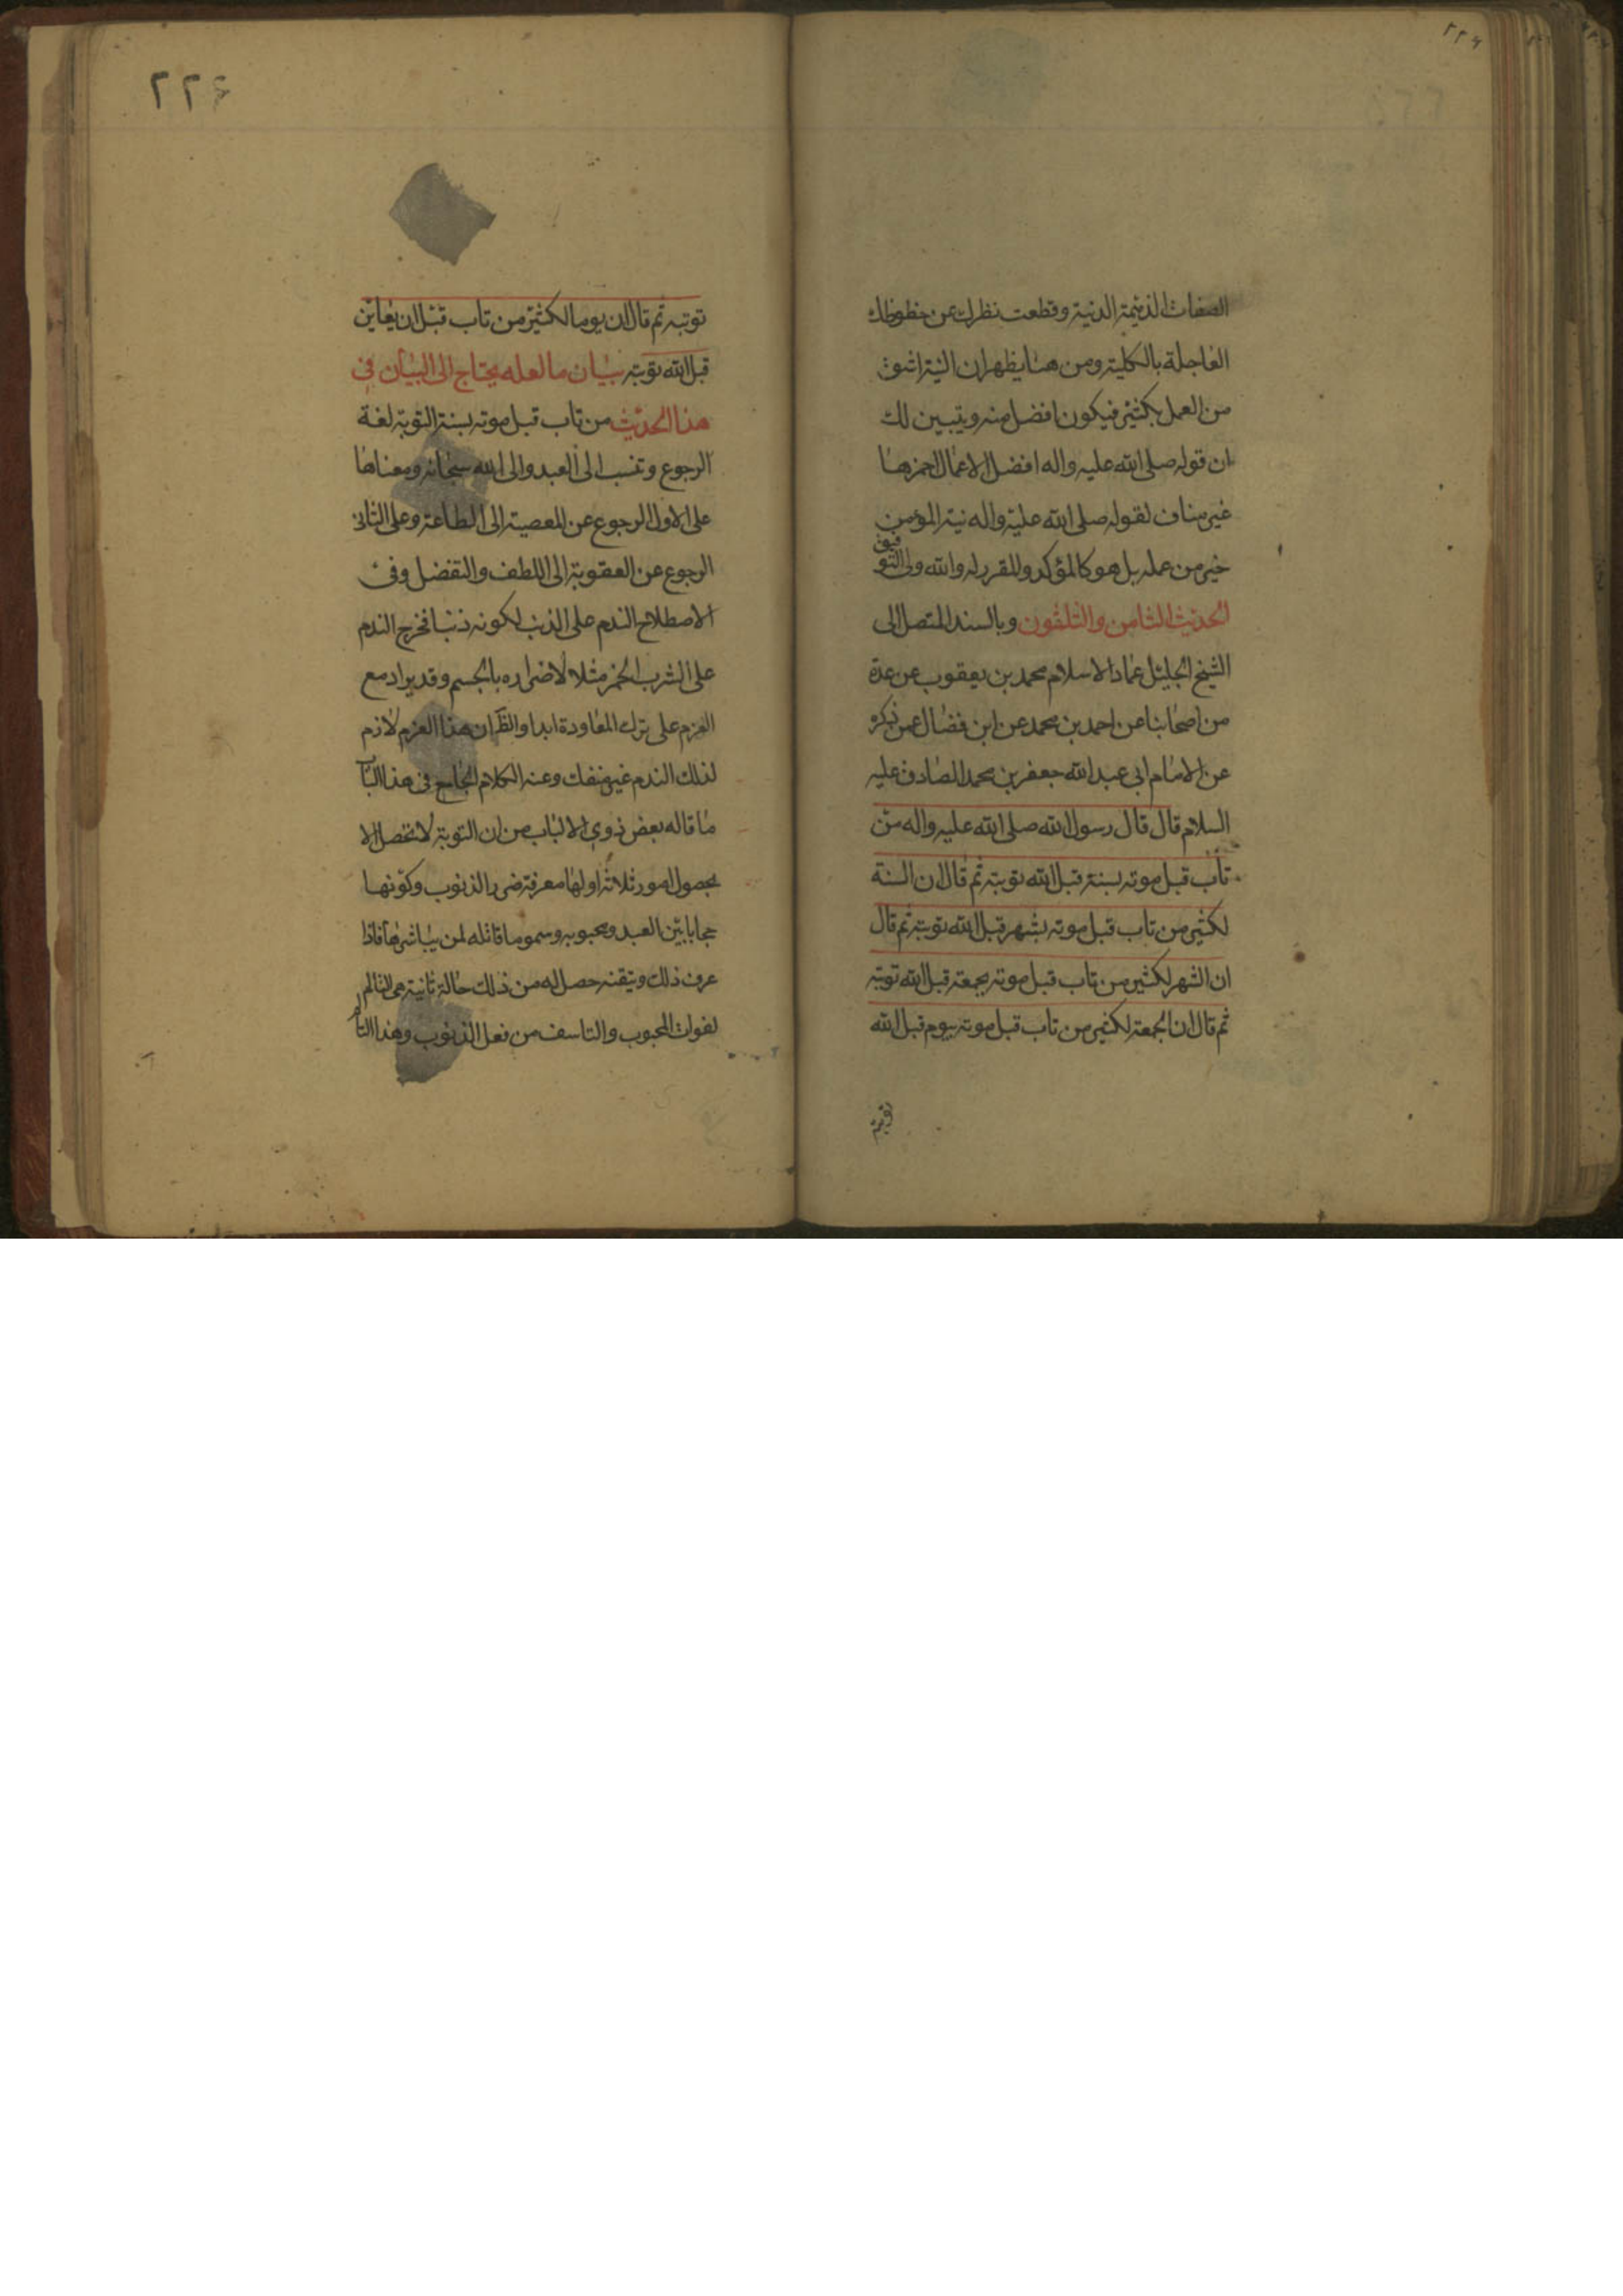 ٢٢٤
الصفات الذميمة الدنية وقطعت نظرك عن حظوظك
العاجلة بالكلية ومن هنا يظهر ان النية اشق
من العمل بكثير فيكون افضل منه ويتبين لك
ان قوله صلى الله عليه واله افضل الاعمال احمزها
غير مناف لقوله صلى الله عليه واله نية المؤمن
خير من عمله بل هو كالمؤكد والمقرر له والله ولى التوفيق
الحديث الثامن والثلثون وبالسند المتصل الى
الشيخ الجليل عماد الاسلام محمد بن يعقوب عن عدة
من اصحابنا عن احمد بن محمد عن ابن فضال عمن ذكره
عن الامام ابى عبد الله جعفر بن محمد الصادق عليه
السلام قال قال رسول الله صلى الله عليه واله من
تاب قبل موته بسنة قبل الله توبته ثم قال ان السنة
لكثير من تاب قبل موته بشهر قبل الله توبته ثم قال
ان الشهر لكثير من تاب قبل موته بجمعة قبل الله توبته
ثم قال ان الجمعة لكثير من تاب قبل موته بيوم قبل الله
توبته
٢٢٤
توبته ثم قال ان يوما لكثير من تاب قبل ان يعاين
قبل الله توبته بيان ما لعله يحتاج الى البيان في
هذا الحديث من تاب قبل موته بسنة التوبة لغة
الرجوع وتنسب الى العبد والى الله سبحانه ومعناها
على الاول الرجوع عن المعصية الى الطاعة وعلى الثانى
الرجوع عن العقوبة الى اللطف والتفضل وفى
الاصطلاح الندم على الذنب لكونه ذنبا فخرج الندم
على الشرب الخمر مثلا لاضراره بالجسم وقد يراد مع
العزم على ترك المعاودة ابدا والظ ان هذا العزم لازم
لذلك الندم غير منفك وعنه الكلام الجامع فى هذا الباب
ما قاله بعض ذوي الالباب من ان التوبة لا تحصل الا
بحصول امور ثلاثة اولها معرفة ضرر الذنوب وكونها
حجابا بين العبد ومحبوبه وسموما قاتله لمن يباشرها فاذا
عرف ذلك وتيقنه حصل له من ذلك حالة ثانية هى التالم
لفوات المحبوب والتاسف من فعل الذنوب وهذا التالم